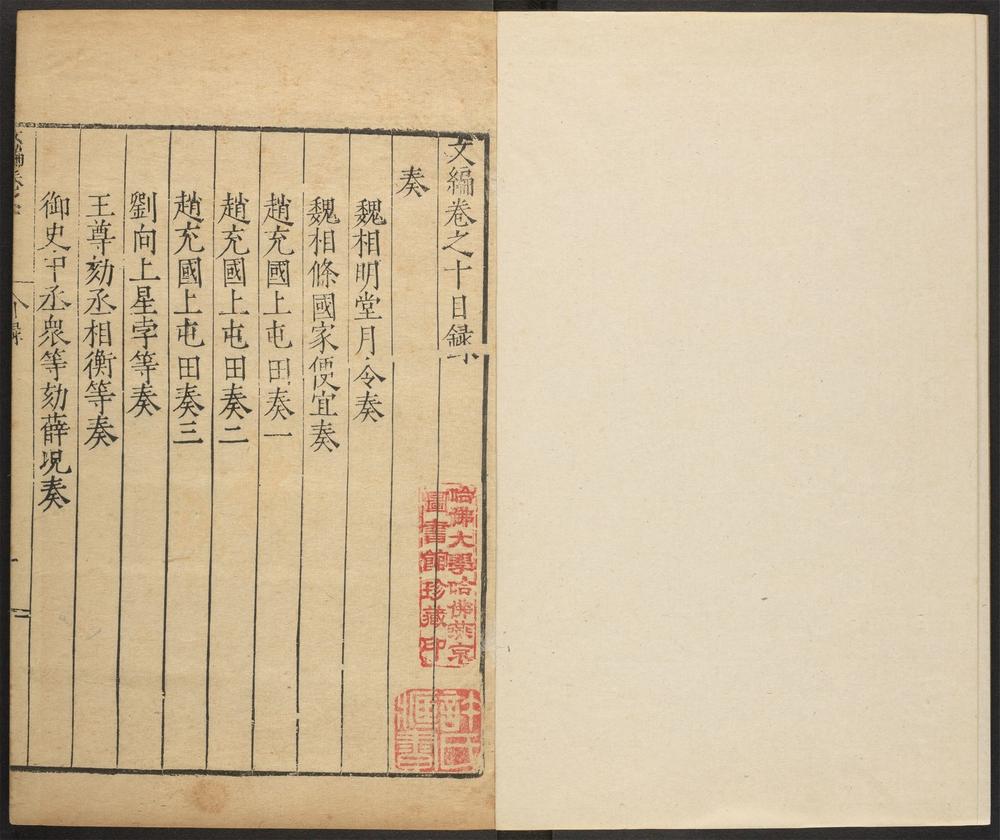 文編卷之十目録
奏
魏相明堂月令奏
魏相條國家便宜奏
趙充國上屯田奏一
趙充國上屯田奏二
趙充國上屯田奏三
劉向上星孛等奏
王尊劾丞相衡等奏
御史中丞衆等劾薛况奏
文編卷之
目録
一
哈佛大學哈佛燕京
圖書館珍藏印